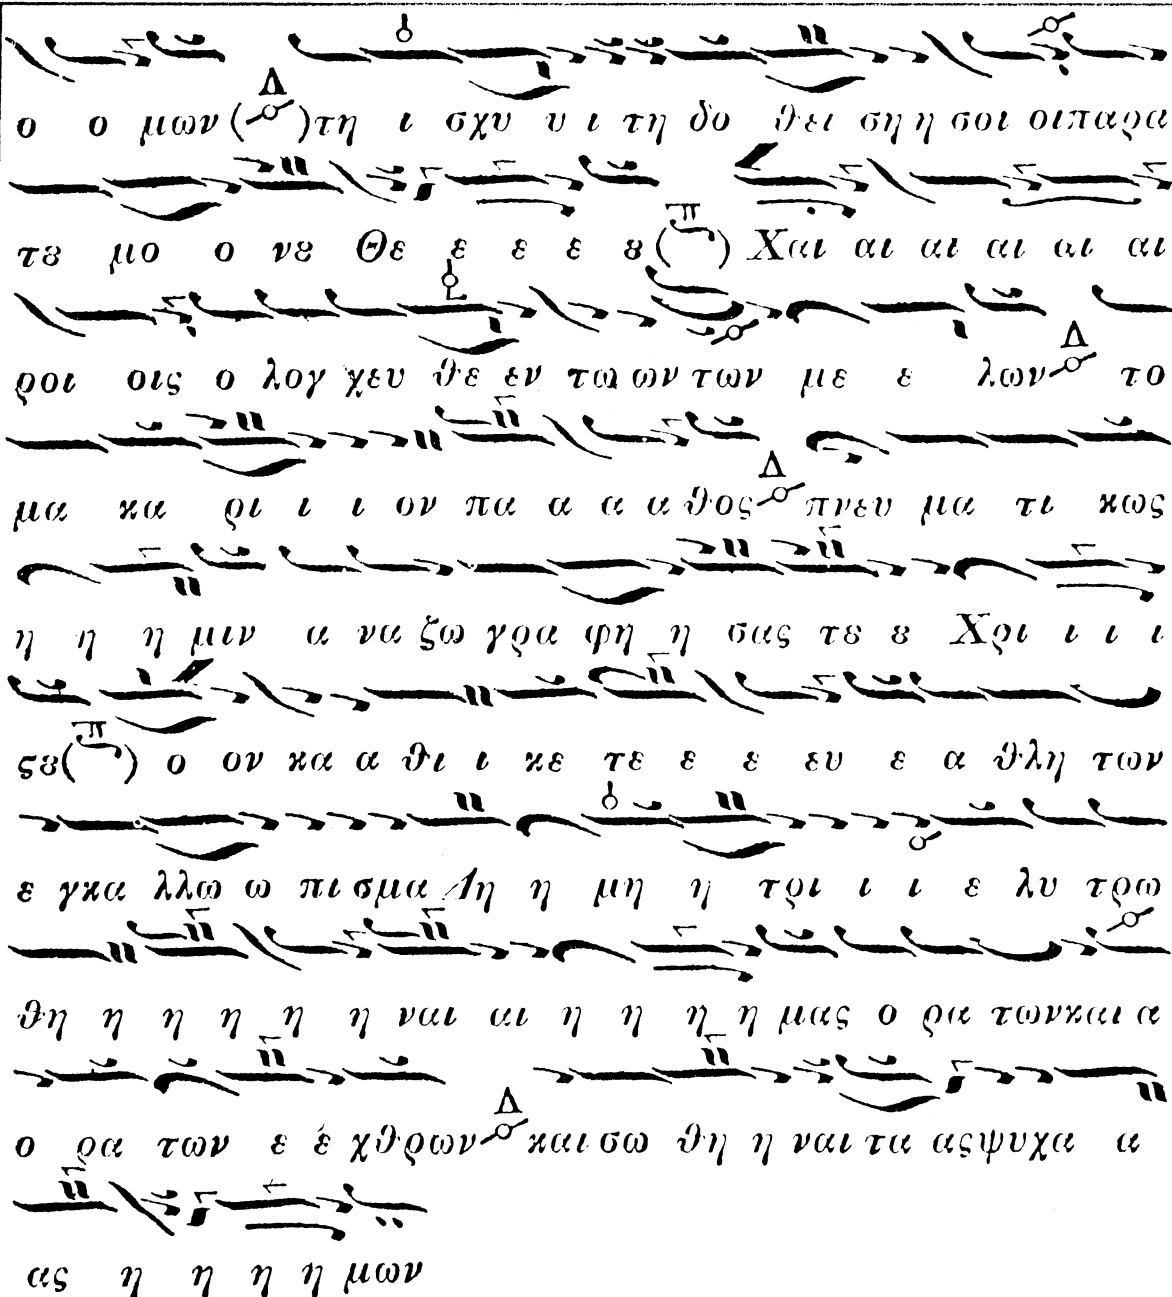 ο ο μων (Δ) τη ι σχυ υ ι τη δο θει ση η σοι οι παρα
τȣ μο ο νȣ Θε ε ε ε ȣ (π) Χαι αι αι αι αι αι
ροι οις ο λογ χευ θε εν τω ων των με ε λων Δ το
μα κα ρι ι ι ον πα α α α θος Δ πνευ μα τι κως
η η η μιν α να ζω γρα φη η σας τȣ ȣ Χρι ι ι ι
ςȣ (π) ο ον κα α θι ι κε τε ε ε ευ ε α θλη των
ε γκα λλω ω πι σμα Δη η μη η τρι ι ι ε λυ τρω
θη η η η η η ναι αι η η η η μας ο ρα των και α
ο ρα των ε έ χθρων Δ και σω θη η ναι τα ας ψυχα α
ας η η η η μων